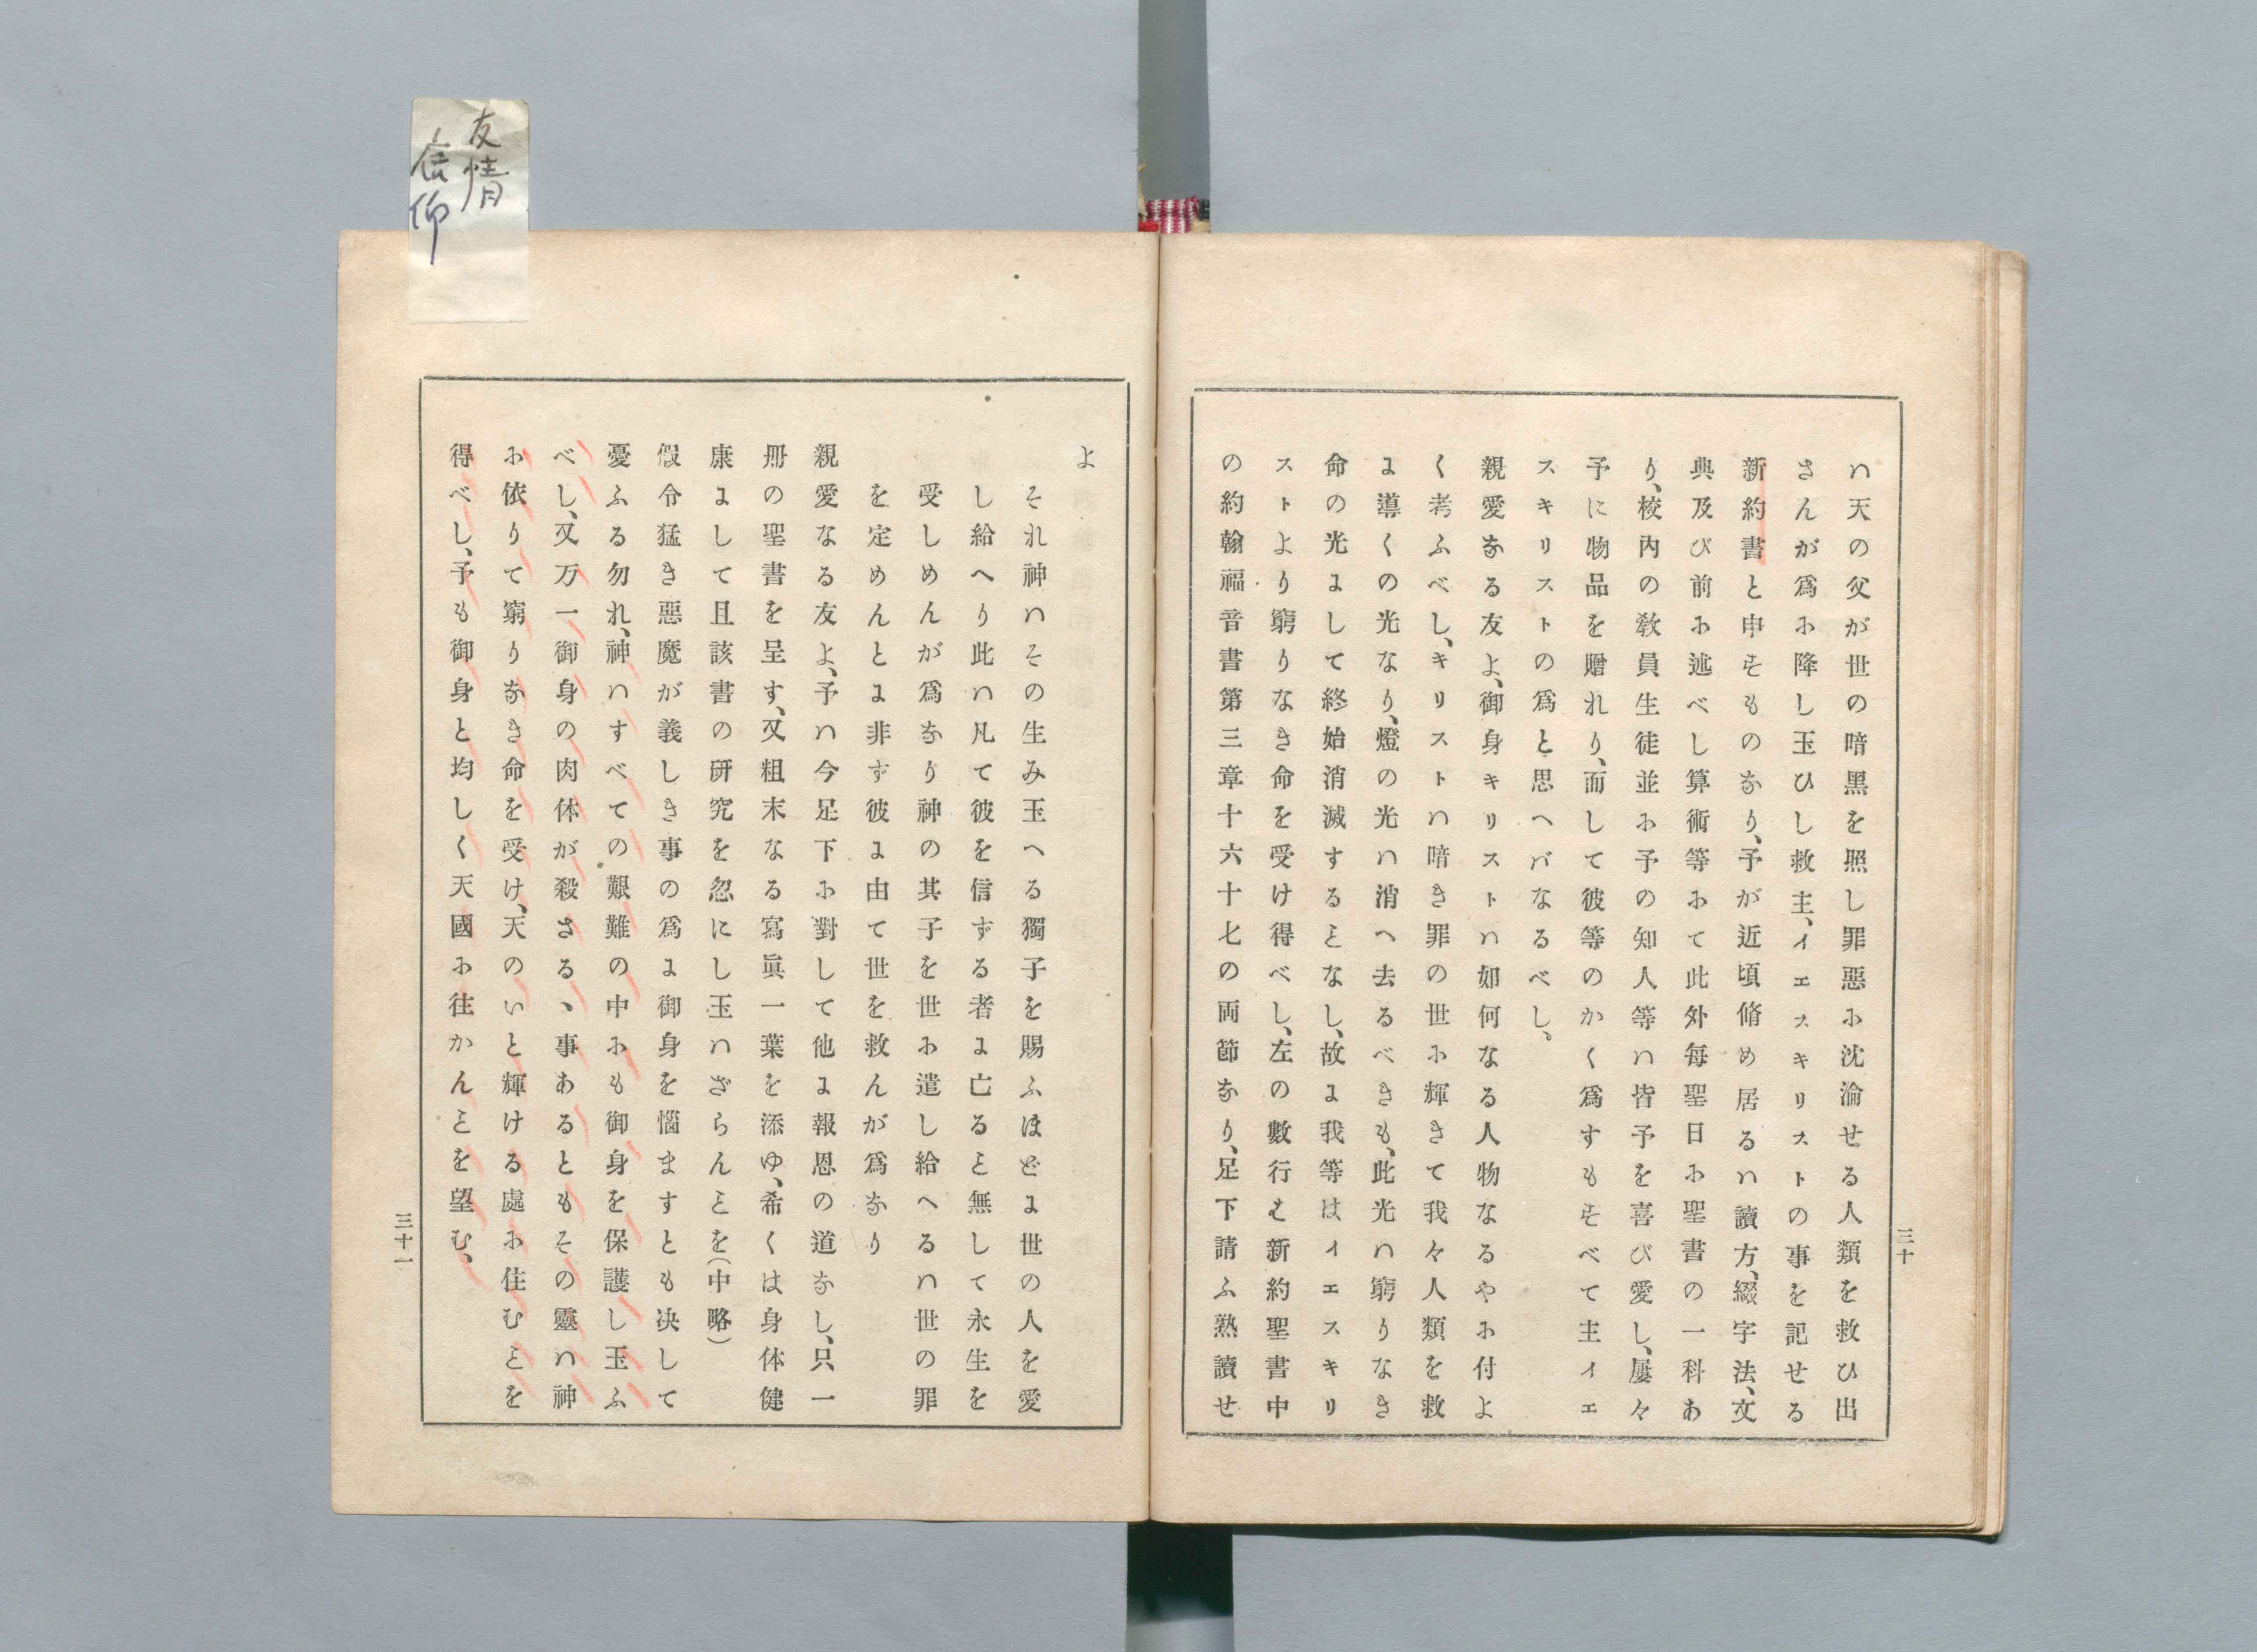 ハ天の父が世の暗黒を照し罪惡に沈淪せる人類を救ひ出
さんが爲に降し玉ひし救主、イエスキリストの事を記せる
新約書と申すものなり、予が近頃脩め居るハ讀方、綴字法、文
典及び前に述べし算術等にて此外毎聖日に聖書の一科あ
り、校内の敎員生徒並に予の知人等ハ皆予を喜び愛し、屢々
予に物品を贈れり、而して彼等のかく爲すもすべて主イエ
スキリストの爲と思へバなるべし、
親愛なる友よ、御身キリストハ如何なる人物なるやに付よ
く考ふべし、キリストハ暗き罪の世に輝きて我々人類を救
に導くの光なり、燈の光ハ消へ去るべきも、此光ハ窮りなき
命の光にして終始消滅するヿなし、故に我等はイエスキリ
ストより窮りなき命を受け得べし、左の數行ハ新約聖書中
の約翰福音書第三章十六十七の両節なり、足下請ふ熟讀せ
三十
よ
それ神ハその生み玉へる獨子を賜ふほどに世の人を愛
し給へり此ハ凡て彼を信ずる者に亡るヿ無して永生を
受しめんが爲なり神の其子を世に遣し給へるハ世の罪
を定めんとに非ず彼に由て世を救んが爲なり
親愛なる友よ、予ハ今足下に對して他に報恩の道なし、只一
冊の聖書を呈す、又粗末なる寫眞一葉を添ゆ、希くは身体健
康にして且該書の硏究を忽にし玉ハざらんヿを(中略)
假令猛き惡魔が義しき事の爲に御身を惱ますとも决して
憂ふる勿れ、神ハすべての艱難の中にも御身を保護し玉ふ
べし、又万一御身の肉体が殺さるゝ事あるともその靈ハ神
に依りて窮りなき命を受け、天のいと輝ける處に住むヿを
得べし、予も御身と均しく天國に往かんヿを望む、
三十一
友情
信仰